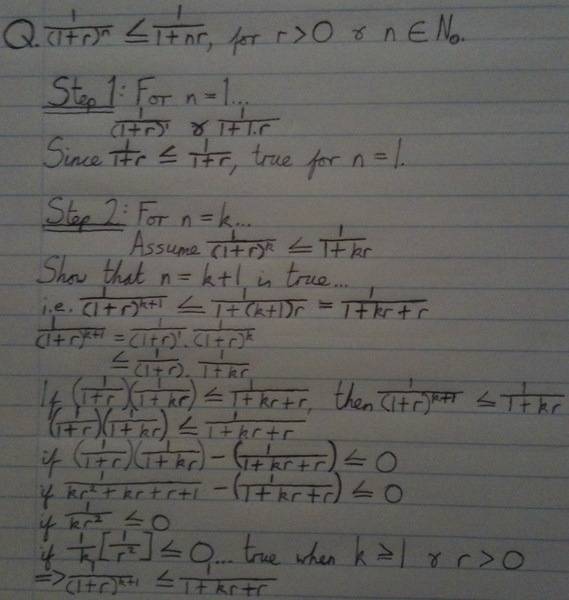 Q. 1/(1+r)^n ≤ 1/1+nr, for r>0 & n ∈ N₀.
Step 1: For n=1...
1/(1+r)^1 & 1/1+1.r
Since 1/1+r ≤ 1/1+r, true for n=1.
Step 2: For n=k...
Assume 1/(1+r)^k ≤ 1/1+kr
Show that n=k+1 is true...
i.e. 1/(1+r)^k+1 ≤ 1/1+(k+1)r = 1/1+kr+r
1/(1+r)^k+1 = 1/(1+r)^1 . 1/(1+r)^k
≤ 1/(1+r) . 1/1+kr
If (1/1+r)(1/1+kr) ≤ 1/1+kr+r, then 1/(1+r)^k+1 ≤ 1/1+kr
(1/1+r)(1/1+kr) ≤ 1/1+kr+r
if (1/1+r)(1/1+kr) - (1/1+kr+r) ≤ 0
if 1/kr²+kr+r+1 - (1/1+kr+r) ≤ 0
if 1/kr² ≤ 0
if 1/k[1/r²] ≤ 0... true when k ≥ 1 & r > 0
=> 1/(1+r)^k+1 ≤ 1/1+kr+r